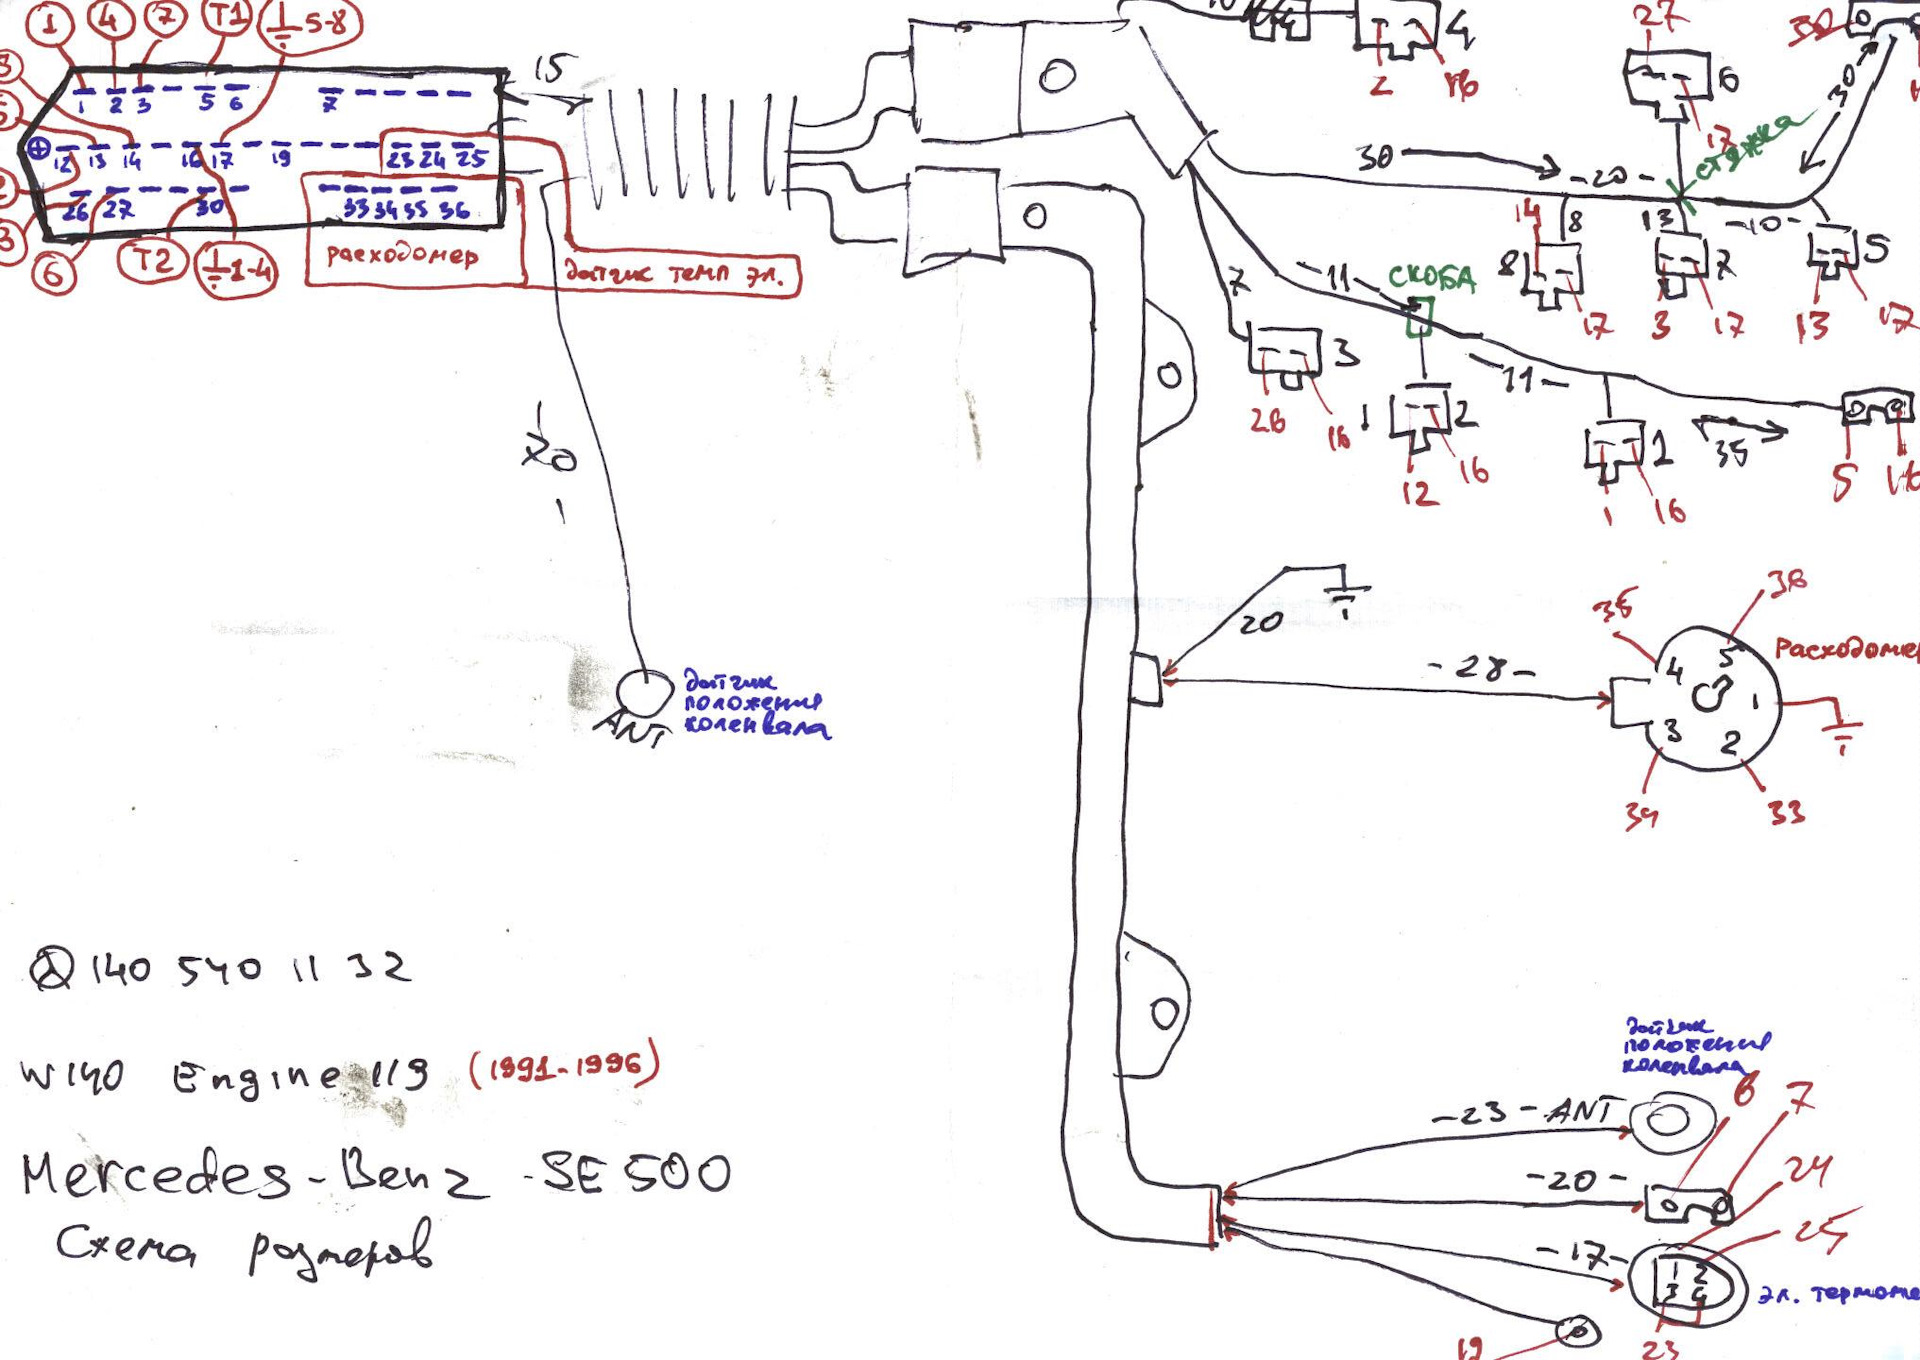 1 4 7 T1 5-8
1 2 3 5 6 7
12 13 14 16 17 19 23 24 25
26 27 30 33 34 35 36
6 T2 1-4
расходомер
датчик темп эл.
15
20
ANT
датчик
положения
коленвала
4
2
16
27
6
17
стяжка
30
30
-20-
14 8
13
-10-
8
7
5
17
3
17
13
17
7
-11-
СКОБА
3
26
16
2
12
16
-11-
1
1
16
35
5
16
20
-28-
расходомер
35
36
4 5 1 3 2
34
33
140 540 11 32
W140 Engine 119 (1991-1996)
Mercedes-Benz -SE 500
Схема размеров
датчик
положения
коленвала
-23-ANT
6
7
-20-
24
25
-17-
1 2
3 4
эл. термоме
19
23